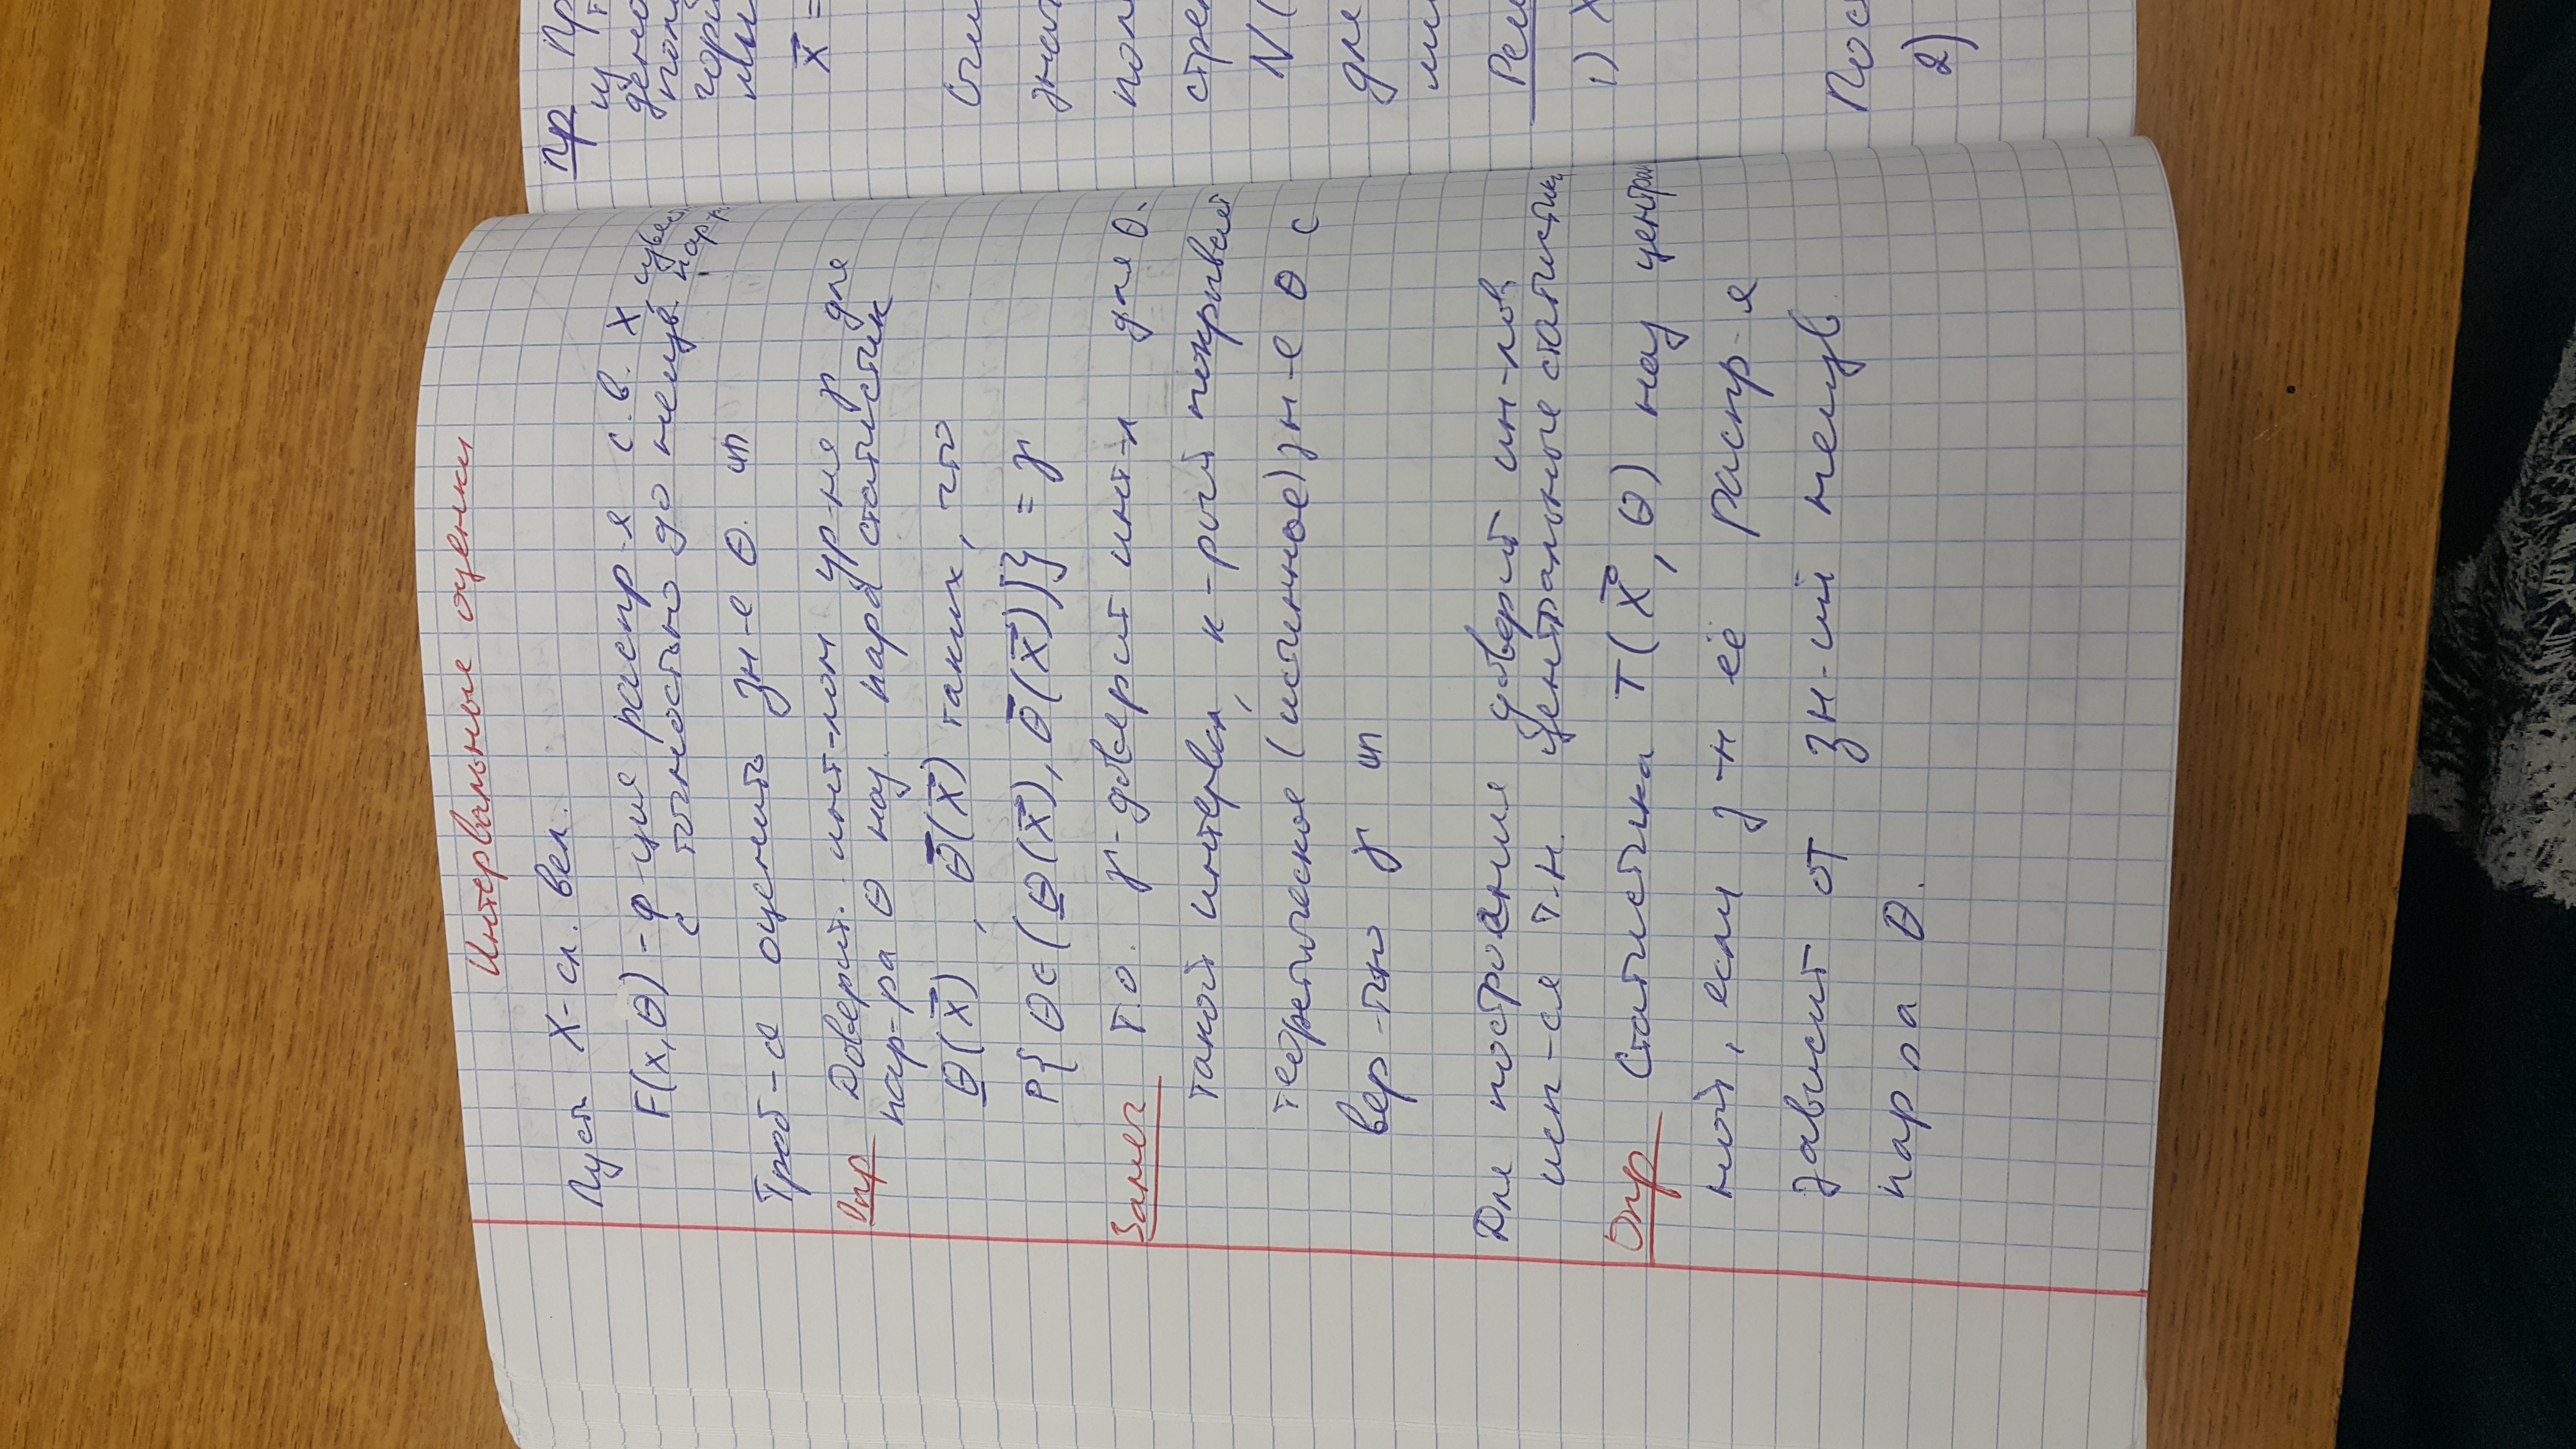 Интервальные оценки
Пусть X - сл. вел.
F(x, θ) - ф-ция распр-я с.в. X,
с точностью до неизв. пар-р
Треб-ся оценить зн-е θ.
Опр Доверит. инт-лом ур-ня γ для
пар-ра θ наз. пара статистик
θ̲(X⃗), θ̅(X⃗) таких, что
P{θ∈(θ̲(X⃗), θ̅(X⃗))} = γ
Замеч Т.о. γ-доверит инт-л для θ-
такой интервал, к-рый покрывает
теоретическое (истинное) зн-е θ с
вер-тью γ
Для построения доверит ин-лов
исп-ся т.н. центральные статистики
Опр Статистика T(X⃗, θ) наз централ
ной, если з-н её распр-я
зависит от зн-ий неизв
пар-ра θ.
Пр Пр
из т
дено
полу
гори
мы
X⃗ =
Счи
знач
пол
стре
N(
для
ми
Реш
1) X
Пос
2)